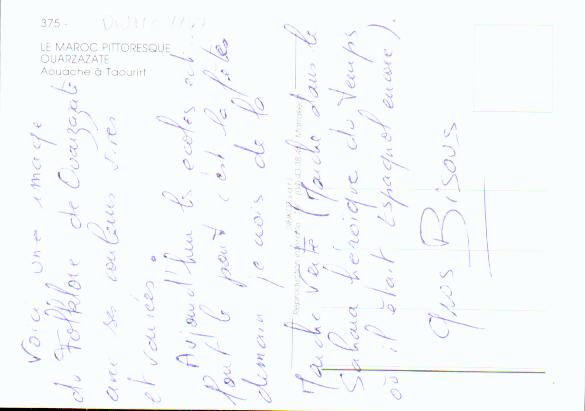 375 -
LE MAROC PITTORESQUE
OUARZAZATE
Aouache à Taourirt
Voici une image
du Folklore de Ouarzazate
avec ses couleurs vives
et variées.
Aujourd'hui les écoles
font le pont, c'est la fête
demain je vais de la
Marche Verte (Marche dans le
Sahara héroïque du temps
où il était Espagnol encore).
Gros Bisous